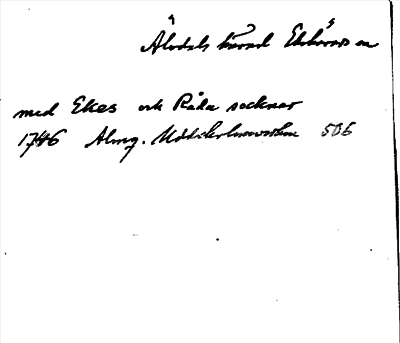 Älvdals härad
med Ekes och Råda socknar
1746 Almg. Uddeholmsverken 506